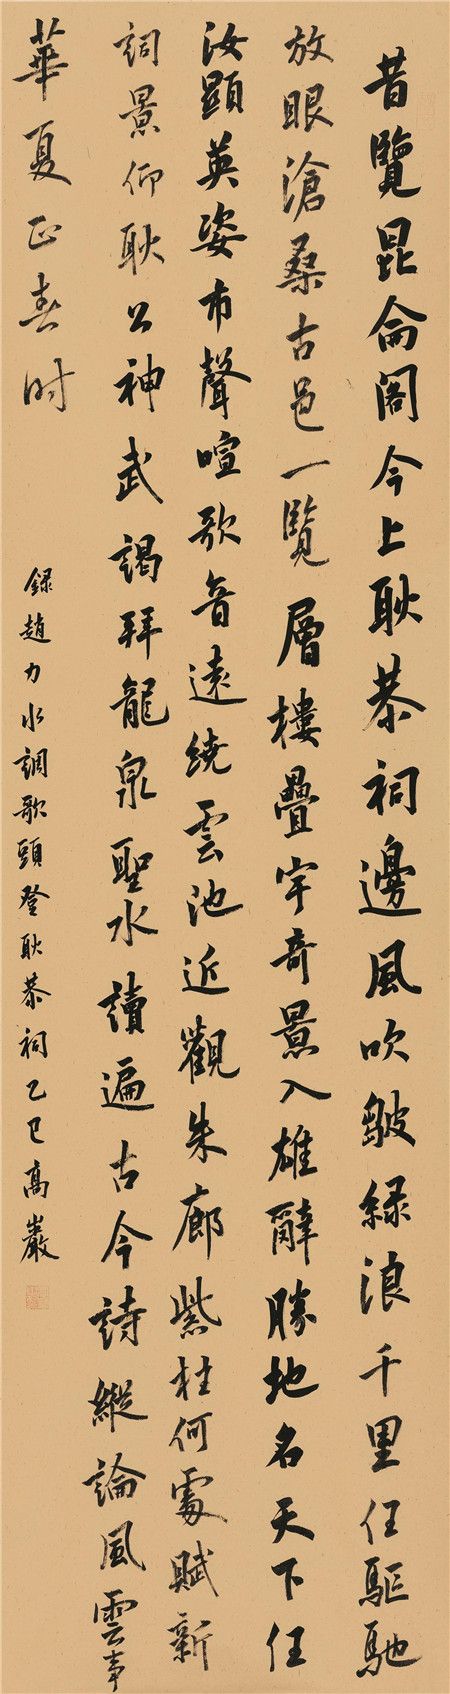 昔覽昆侖閣今上耿恭祠邊風吹皺緑浪千里任驅馳
放眼滄桑古邑一覽層樓疊宇奇景入雄辭勝地名天下任
汝顯英姿市聲喧歌音遠繞雲池近觀朱廊紫柱何處賦新
詞景仰耿公神武謁拜龍泉聖水讀遍古今詩縱論風雲事
華夏正春时
録趙力水調歌頭登耿恭祠乙巳高巖